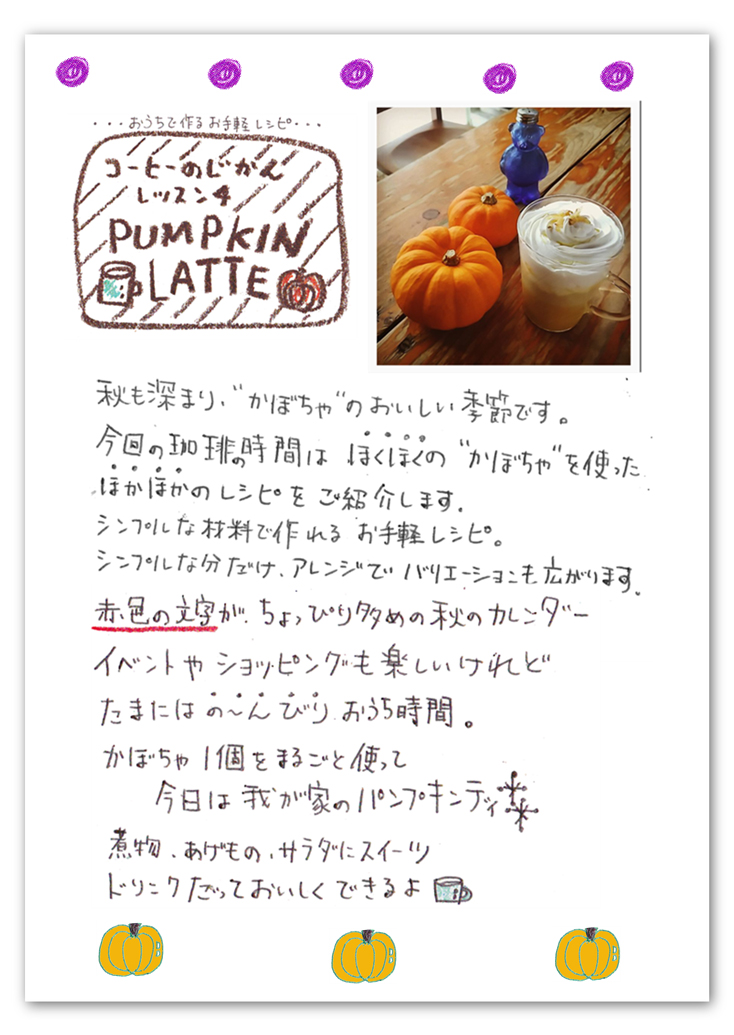 ・・・おうちで作るお手軽レシピ・・・
コーヒーのじかん
レッスン4
PUMPKIN
LATTE
秋も深まり、"かぼちゃ"のおいしい季節です。
今回の珈琲の時間は ほくほくの "かぼちゃ"を使った
ほかほかのレシピを ご紹介します。
シンプルな材料で作れる お手軽レシピ。
シンプルな分だけ、アレンジで バリエーションも広がります。
赤色の文字が、ちょっぴり多めの秋のカレンダー
イベントや ショッピングも楽しいけれど
たまには の〜んびり おうち時間。
かぼちゃ 1個をまるごと使って
今日は 我が家のパンプキンディ
煮物、あげもの、サラダにスイーツ
ドリンクだっておいしくできるよ